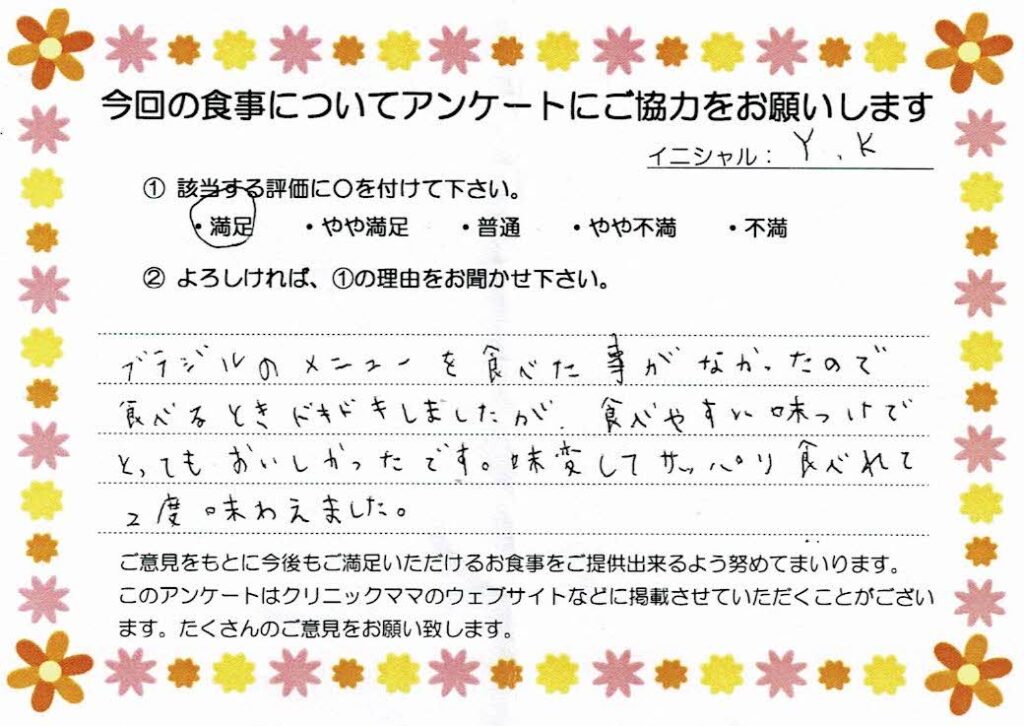 今回の食事についてアンケートにご協力をお願いします
イニシャル： Y.K
① 該当する評価に〇を付けて下さい。
・満足 ・やや満足 ・普通 ・やや不満 ・不満
② よろしければ、①の理由をお聞かせ下さい。
ブラジルのメニューを食べた事がなかったので
食べるときドキドキしましたが、食べやすい味つけで
とってもおいしかったです。味変してサッパリ食べれて
2度味わえました。
ご意見をもとに今後もご満足いただけるお食事をご提供出来るよう努めてまいります。
このアンケートはクリニックママのウェブサイトなどに掲載させていただくことがござい
ます。たくさんのご意見をお願い致します。